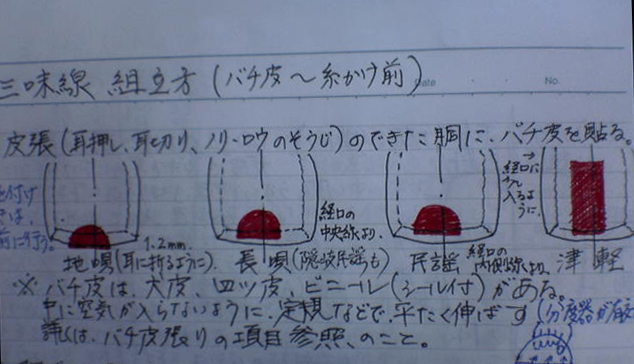 三味線 組立方(バチ皮〜糸かけ前)
Date
No.
皮張(耳押し、耳切り、ノリ・ロウのそうじ)のできた胴に、バチ皮を貼る。
経口の
中央線より、
経口に
入るよ
うに、
前に行う。
1.2mm
地唄(耳に折るように)、長唄(隠岐民謡も)
民謡
経口の
内側線より、
津軽
※ バチ皮は、犬皮、四ツ皮、ビニール(シール付)がある。
中に空気が入らないように、定規などで、平たく伸ばす
(分度器が
詳しくは、バチ皮張りの項目参照、のこと。